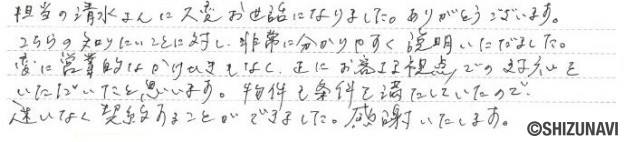 担当の清水さんに大変お世話になりました。ありがとうございます。
こちらの知りたいことに対し、非常に分かりやすく説明いただきました。
変に営業的なかけひきもなく、正にお客さま視点での対応を
いただいたと思います。物件も条件を満たしていたので、
迷いなく契約することができました。感謝いたします。
©SHIZUNAVI